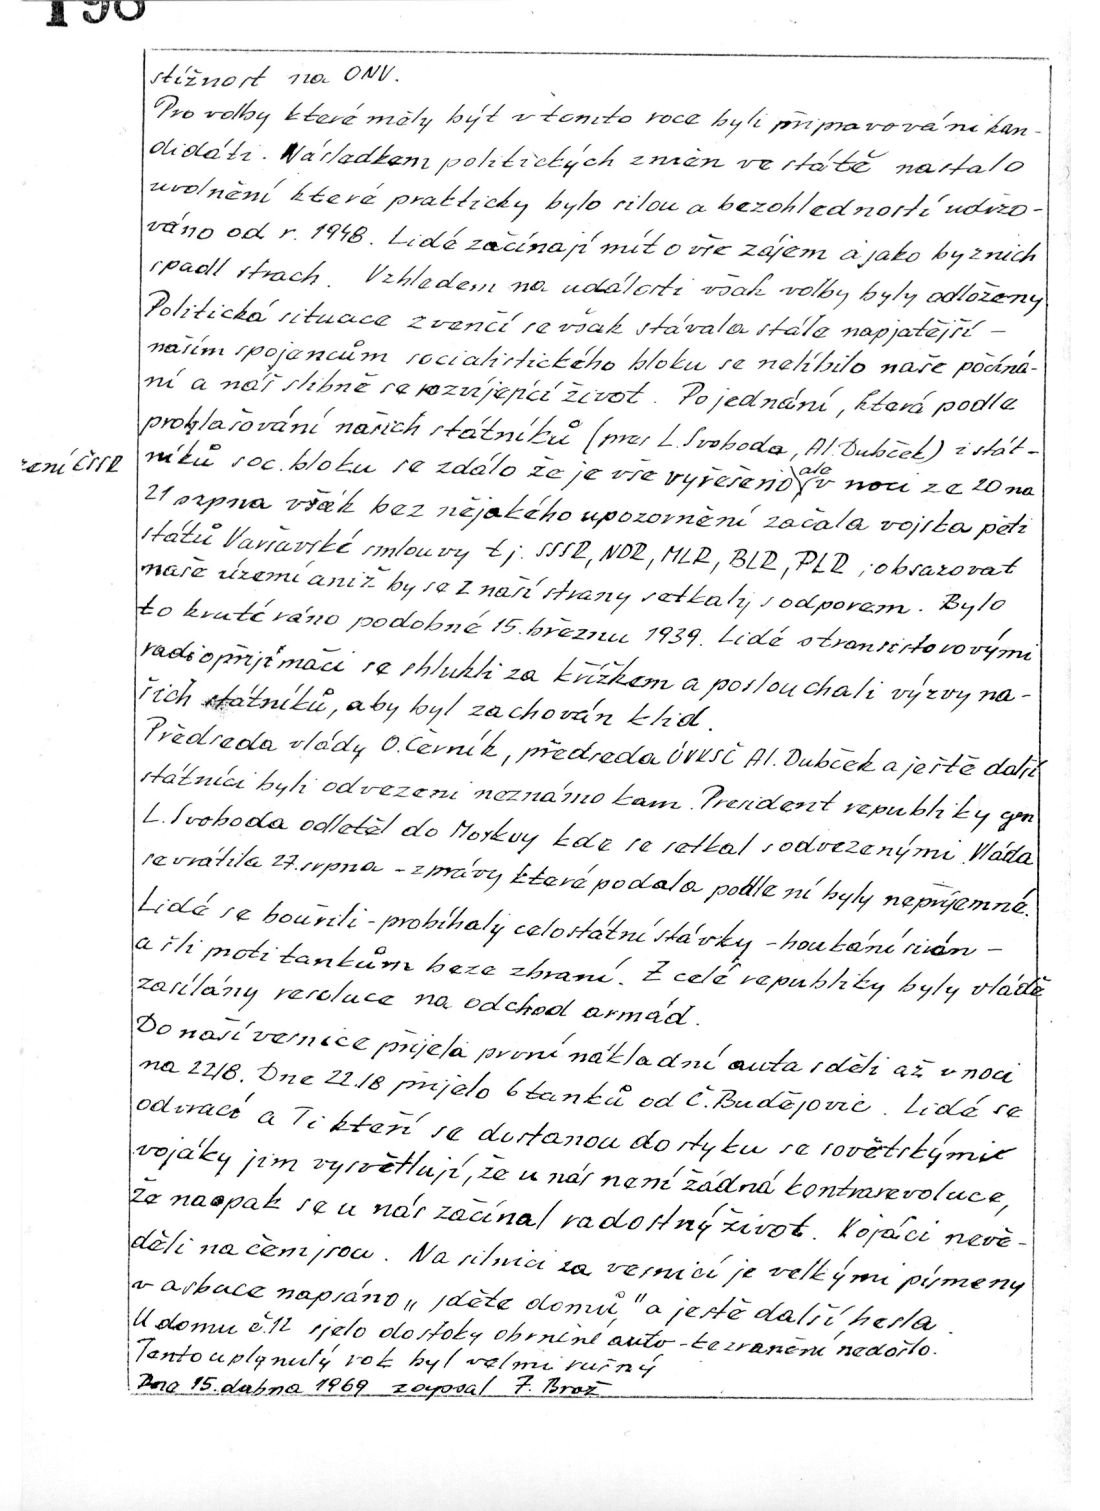 198
stížnost na ONV.
Pro volby které měly být v tomto roce byli připravováni kan-
didáti. Následkem politických změn ve státě nastalo
uvolnění které prakticky bylo silou a bezohledností udržo-
váno od r. 1948. Lidé začínají mít o vše zájem a jako by z nich
spadl strach. Vzhledem na události však volby byly odloženy
Politická situace zvenčí se však stávala stále napjatější –
našim spojencům socialistického bloku se nelíbilo naše počíná-
ní a náš slibně se rozvíjející život. Po jednání, která podle
prohlašování našich státníků (pres L. Svoboda, Al. Dubček) i stát-
zení ČSSR
níků soc. bloku se zdálo že je vše vyřešeno ale v noci ze 20 na
21 srpna však bez nějakého upozornění začala vojska pěti
států Varšavské smlouvy tj. SSSR, NDR, MLR, BLR, PLR, obsazovat
naše území aniž by se z naší strany setkaly s odporem. Bylo
to kruté ráno podobné 15. březnu 1939. Lidé s transistorovými
radiopřijímači se shlukli za křížkem a poslouchali výzvy na-
šich státníků, aby byl zachován klid.
Předseda vlády O. Černík, předseda ÚVKSČ Al. Dubček a ještě další
státníci byli odvezeni neznámo kam. President republiky gen
L. Svoboda odletěl do Moskvy kde se setkal s odvezenými. Vláda
se vrátila 27. srpna – zprávy které podala podle ní byly nepříjemné.
Lidé se bouřili – probíhaly celostátní stávky – houkání sirén –
a šli proti tankům beze zbraní. Z celé republiky byly vládě
zasílány resoluce na odchod armád.
Do naší vesnice přijela první nákladní auta s děli až v noci
na 22/8. Dne 22./8 přijelo 6 tanků od Č. Budějovic. Lidé se
odvrací a Ti kteří se dostanou do styku se sovětskými
vojáky jim vysvětlují, že u nás není žádná kontrarevoluce,
že naopak se u nás začínal radostný život. Vojáci nevě-
děli na čem jsou. Na silnici za vesnicí je velkými písmeny
v azbuce napsáno „ jděte domů " a ještě další hesla.
U domu č. 12 sjelo do stoky obrněné auto – ke zranění nedošlo.
Tento uplynulý rok byl velmi rušný
Dne 15. dubna 1969 zapsal F. Brož